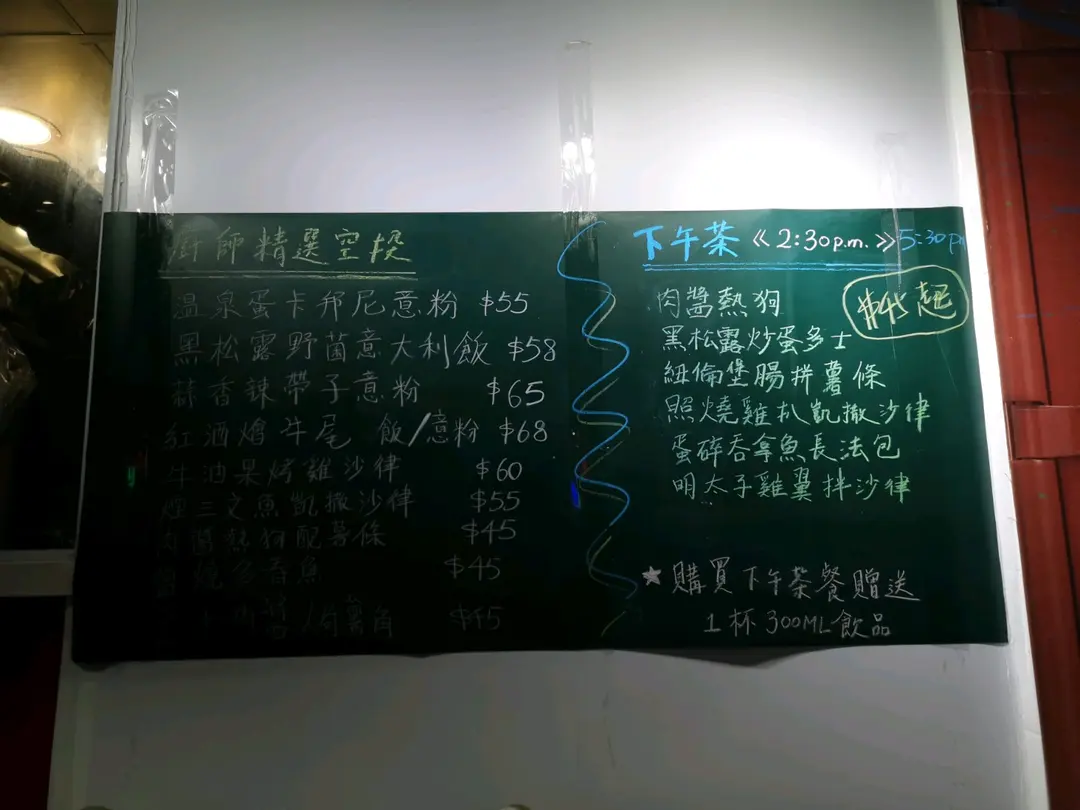 廚師精選空投
温泉蛋卡邦尼意粉 $55
黑松露野菌意大利飯 $58
蒜香辣帶子意粉 $65
紅酒燴牛尾 飯/意粉 $68
牛油果烤雞沙律 $60
煙三文魚凱撒沙律 $55
肉醬熱狗配薯條 $45
燒多春魚 $45
薯角 $45
下午茶 《2:30p.m.》5:30p
$45 起
肉醬熱狗
黑松露炒蛋多士
紐倫堡腸拼薯條
照燒雞扒凱撒沙律
蛋碎吞拿魚長法包
明太子雞翼拌沙律
★購買下午茶餐贈送
1杯300ML飲品